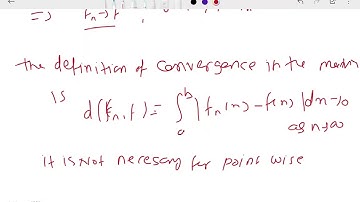 => fn→f
the definition of convergence in the maxim
is d(fn, f) = ∫ₐᵇ |fn(x) - f(x)| dx → 0
as n→∞
it is not necesary for point wise